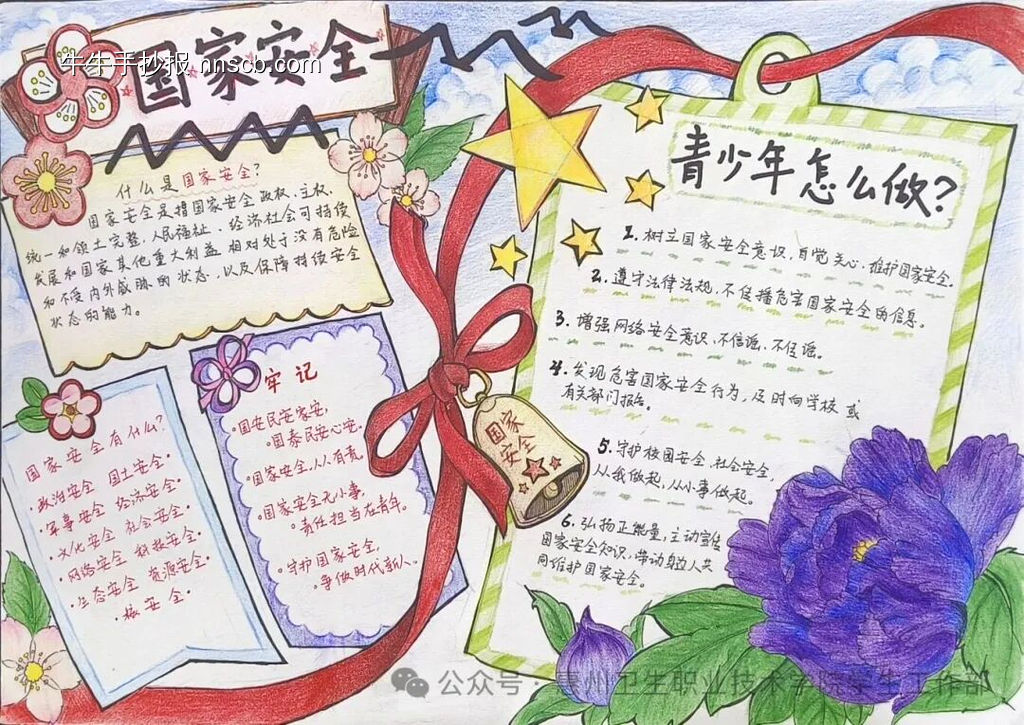 国家安全
牛牛手抄报 nnscb.com
什么是国家安全?
国家安全是指国家安全政权、主权、
统一和领土完整,人民福祉、经济社会可持续
发展和国家其他重大利益相对处于没有危险
和不受内外威胁的状态,以及保障持续安全
状态的能力。
国家安全有什么?
·政治安全 国土安全·
·军事安全 经济安全·
·文化安全 社会安全·
·网络安全 科技安全·
·生态安全 资源安全·
·核安全·
牢记
·国安民安家安,
国泰民安心安。
·国家安全,人人有责。
·国家安全无小事,
责任担当在青年。
·守护国家安全,
争做时代新人。
国家
安全
青少年怎么做?
1. 树立国家安全意识,自觉关心、维护国家安全。
2. 遵守法律法规,不传播危害国家安全的信息。
3. 增强网络安全意识,不信谣、不传谣。
4. 发现危害国家安全行为,及时向学校或
有关部门报告。
5. 守护校园安全、社会安全,
从我做起,从小事做起。
6. 弘扬正能量,主动宣传
国家安全知识,带动身边人共
同维护国家安全。
公众号·惠州卫生职业技术学院学生工作部